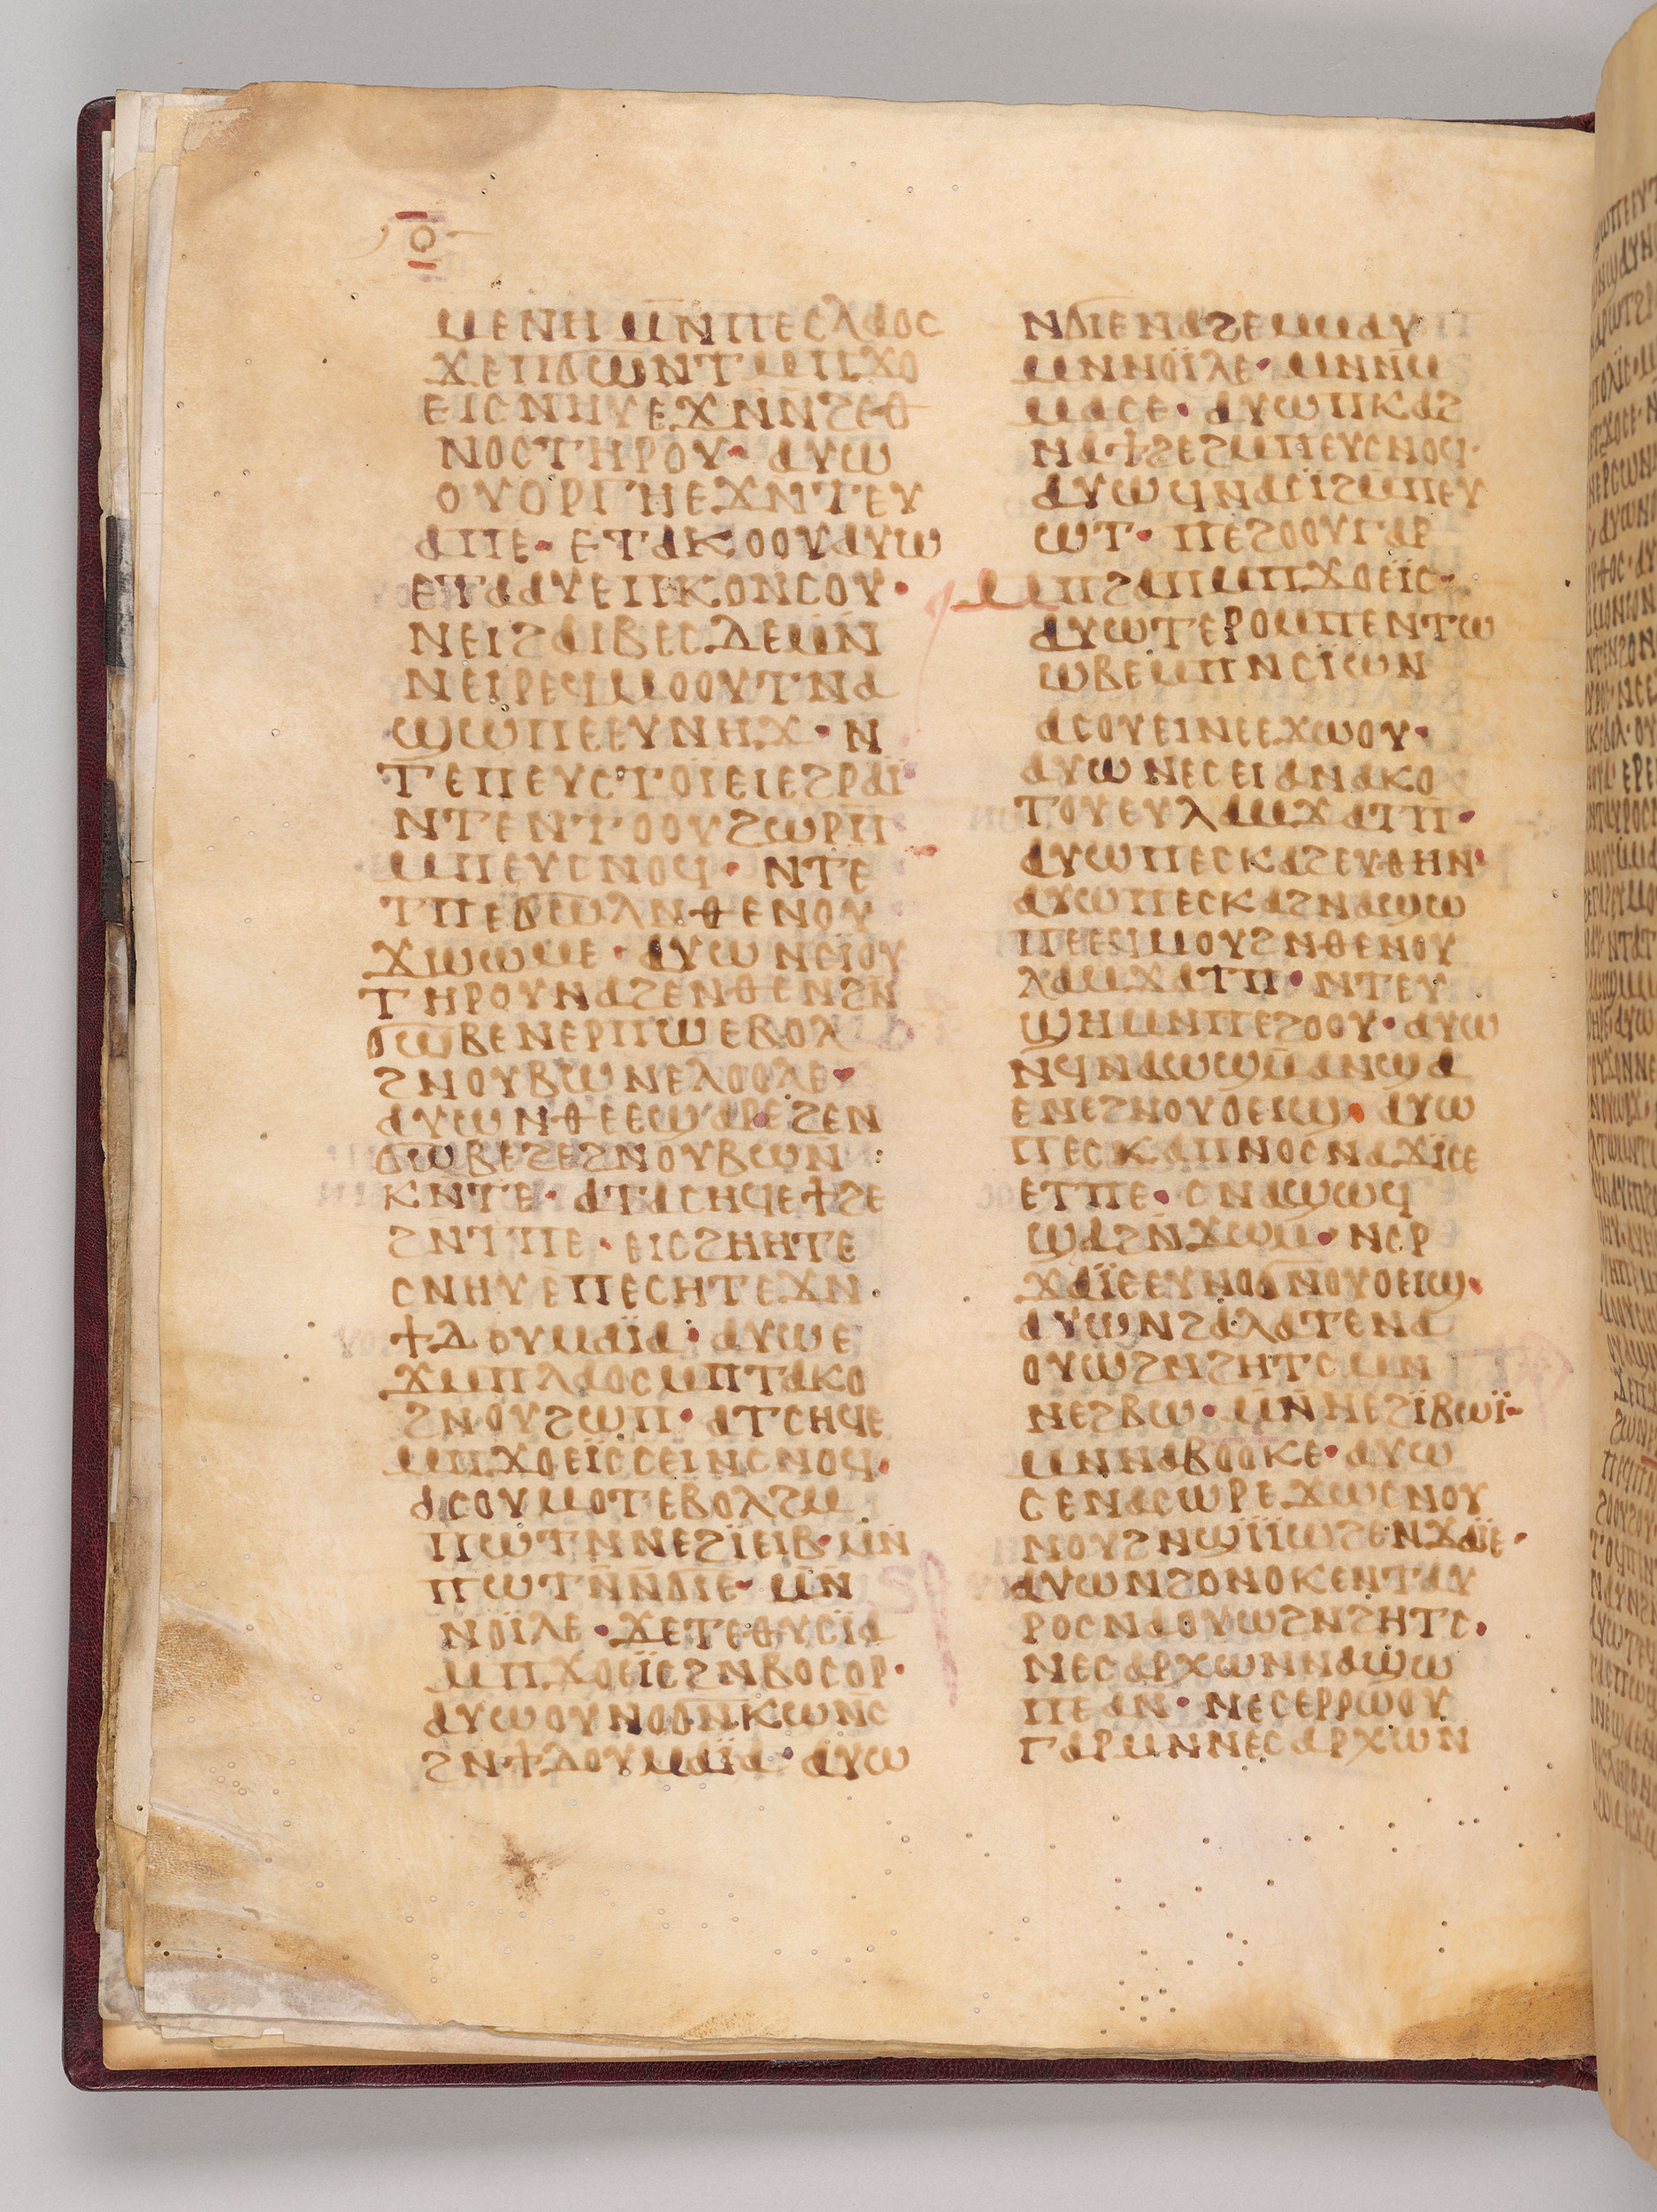 ⲟ
ⲙⲉⲛⲏ ⲙⲛ̄ⲡⲉⲥⲗⲁⲟⲥ
ϫⲉⲡϭⲱⲛⲧⲙⲡϫⲟ
ⲉⲓⲥⲛⲏⲩⲉϫⲛ̄ⲛ̄ϩⲉⲑ
ⲛⲟⲥⲧⲏⲣⲟⲩ· ⲁⲩⲱ
ⲟⲩⲟⲣⲅⲏⲉϫⲛⲧⲉⲩ
ⲁⲡⲉ· ⲉⲧⲁⲕⲟⲟⲩⲁⲩⲱ
ⲉⲧⲁⲁⲩⲉⲡⲕⲟⲛⲥⲟⲩ·
ⲛⲉⲓϩⲁⲓⲃⲉⲥⲇⲉⲙⲛ̄
ⲛⲉⲓⲣⲉϥⲙⲟⲟⲩⲧⲛⲁ
ϣⲱⲡⲉⲉⲩⲛⲏϫ· ⲛ
ⲧⲉⲡⲉⲩⲥⲧⲟⲓ̈ⲉⲓⲉϩⲣⲁⲓ̈
ⲛⲧⲉⲛⲧⲟⲟⲩϩⲱⲣⲡ̄
ⲙⲡⲉⲩⲥⲛⲟϥ· ⲛⲧⲉ
ⲧⲡⲉϭⲱⲗⲛⲑⲉⲛⲟⲩ
ϫⲱⲱⲙⲉ· ⲁⲩⲱⲛⲥⲓ̈ⲟⲩ
ⲧⲏⲣⲟⲩⲛⲁϩⲉⲛⲑⲉⲛϩⲛ̄
ϭⲱⲃⲉⲛⲉⲣⲡⲱⲉⲃⲟⲗ
ϩⲛⲟⲩⲃⲱⲛⲉⲗⲟⲟⲗⲉ·
ⲁⲩⲱⲛⲑⲉⲉϣⲁⲣⲉϩⲉⲛ
ϭⲱⲃⲉϩⲉϩⲛⲟⲩⲃⲱⲛ̄
ⲕⲛⲧⲉ· ⲁⲧⲁⲥⲏϥⲉϯϩⲉ
ϩⲛⲧⲡⲉ· ⲉⲓⲥϩⲏⲏⲧⲉ
ⲥⲛⲏⲩⲉⲡⲉⲥⲏⲧⲉϫⲛ·
ϯⲇⲟⲩⲙⲁⲓ̈ⲁ· ⲁⲩⲱⲉ
ϫⲙⲡⲗⲁⲟⲥⲙⲡⲧⲁⲕⲟ
ϩⲛⲟⲩϩⲱⲡ· ⲁⲧⲥⲏϥⲉ
ⲙⲡϫⲟⲉⲓ̈ⲥⲥⲉⲓⲛⲥⲛⲟϥ·
ⲁⲥⲟⲩⲙⲟⲧⲉⲃⲟⲗϩⲙ
ⲡⲱⲧⲛⲛⲉϩⲓ̈ⲉⲓⲃ· ⲙⲛ̄
ⲡⲱⲧⲛ̄ⲛ̄ϭⲓⲉ· ⲙⲛ
ⲛⲟⲓ̈ⲗⲉ· ϫⲉⲧⲉⲑⲩⲥⲓ̈ⲁ
ⲙⲡϫⲟⲉⲓ̈ⲥϩⲛⲃⲟⲥⲟⲣ·
ⲁⲩⲱⲟⲩⲛⲟϭⲛⲕⲱⲛⲥ
ϩⲛϯⲇⲟⲩⲙⲁⲓ̈ⲁ· ⲁⲩⲱ
ⲛϭⲓⲉⲛⲁϩⲉⲙⲙⲁⲩ
ⲙⲛⲛⲟⲓ̈ⲗⲉ· ⲙⲛⲛⲙ
ⲙⲁⲥⲉ· ⲁⲩⲱⲡⲕⲁϩ
ⲛⲁϯϩⲉϩⲙⲡⲉⲩⲥⲛⲟϥ·
ⲁⲩⲱϥⲛⲁⲥⲓ̈ϩⲙⲡⲉⲩ
ⲱⲧ· ⲡⲉϩⲟⲟⲩⲅⲁⲣ
ⲙⲡϩⲁⲡⲙⲡϫⲟⲉⲓ̈ⲥ·
ⲁⲩⲱⲧⲉⲣⲟⲙⲡⲉⲛⲧⲱ
ⲱⲃⲉⲙⲡⲛⲥⲓ̈ⲱⲛ
ⲁⲥⲟⲩⲉⲓⲛⲉⲉϫⲱⲟⲩ·
ⲁⲩⲱⲛⲉⲥⲉⲓⲁⲛⲁⲕⲟ
ⲧⲟⲩⲉⲩⲗⲁⲙϫⲁⲧⲡ·
ⲁⲩⲱⲡⲉⲥⲕⲁϩⲉⲩⲑⲏⲛ·
ⲁⲩⲱⲡⲉⲥⲕⲁϩⲛⲁϣⲱ
ⲡⲉⲉϥⲙⲟⲩϩⲛⲑⲉⲛⲟⲩ
ⲗⲁⲙϫⲁⲧⲡ· ⲛⲧⲉⲩ
ϣⲏⲙⲛⲡⲉϩⲟⲟⲩ· ⲁⲩⲱ
ⲛϥⲛⲁⲱϣⲙ̄ⲁⲛϣⲁ
ⲉⲛⲉϩⲛⲟⲩⲟⲉⲓϣ· ⲁⲩⲱ
ⲡⲉⲥⲕⲁⲡⲛⲟⲥⲛⲁϫⲓ̈ⲥⲉ
ⲉⲧⲡⲉ· ⲥⲛⲁϣⲱϥ
ϣⲁϩⲛ̄ϫⲱⲙ· ⲛⲥⲣ
ϫⲁⲓ̈ⲉⲉⲩⲛⲟϭⲛⲟⲩⲟⲉⲓϣ·
ⲁⲩⲱⲛϩⲁⲗⲁⲧⲉⲛⲁ
ⲟⲩⲱϩⲛϩⲏⲧⲥⲙⲛ
ⲛⲉϩⲃⲱ· ⲙⲛ̄ⲛⲉϩⲓ̈ⲃⲱⲓ̈·
ⲙⲛⲛⲁⲃⲟⲟⲕⲉ· ⲁⲩⲱ
ⲥⲉⲛⲁⲥⲱⲣⲉϫⲱⲥⲛⲟⲩ
ⲛⲟⲩϩⲛϣⲓ̈ⲓ̈ⲱϩⲉⲛϫⲁⲓ̈ⲉ·
ⲁⲩⲱⲛϩⲟⲛⲟⲕⲉⲛⲧⲁⲩ
ⲣⲟⲥⲛⲁⲟⲩⲱϩⲛϩⲏⲧⲥ·
ⲛⲉⲥⲁⲣⲭⲱⲛⲛⲁϣⲱ
ⲡⲉⲁⲛ· ⲛⲉⲥⲉⲣⲣⲱⲟⲩ
ⲅⲁⲣⲙⲛⲛⲉⲥⲁⲣⲭⲱⲛ